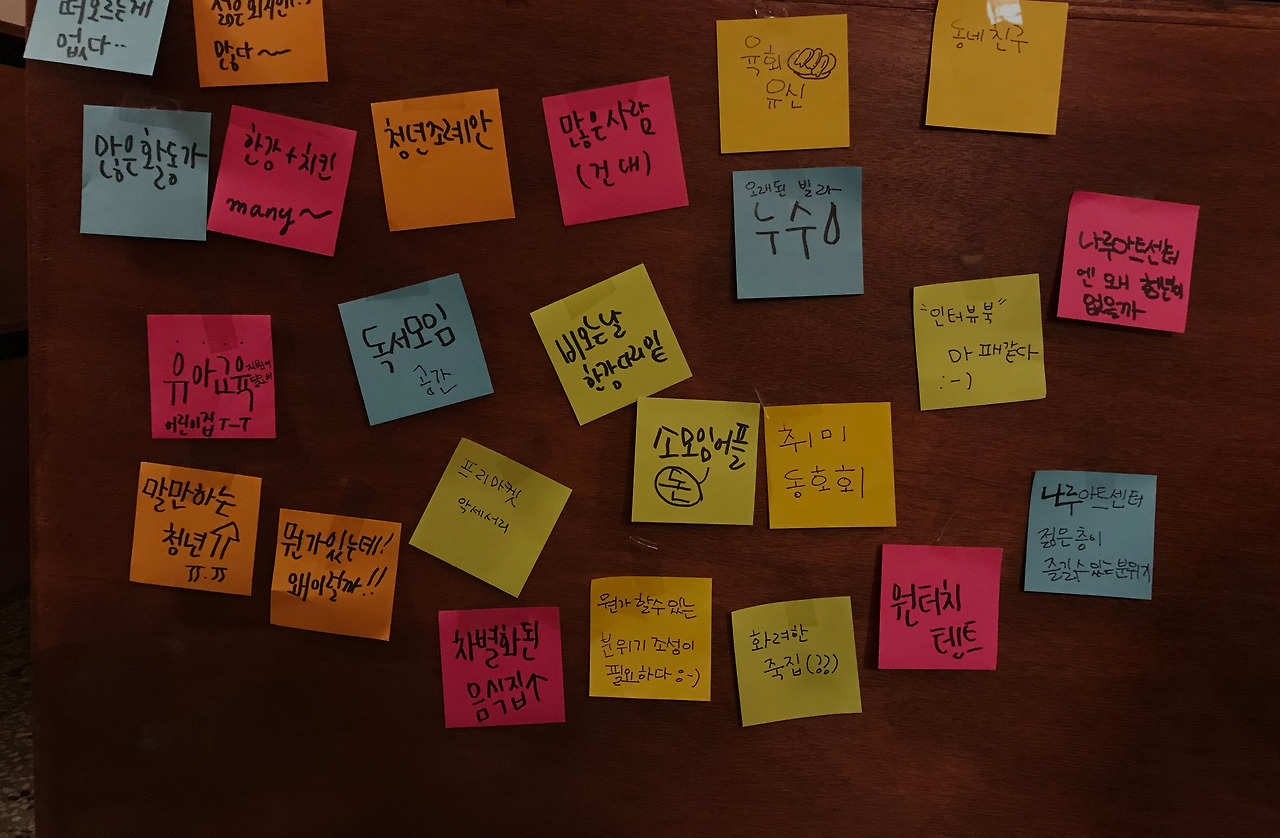 떠오르는게
없다..
많다~
육회
유신
동네 친구
많은활동가
한강+치킨
many~
청년조례안
많은사람
(건대)
오래된 빌라
누수
나루아트센터
엔 왜 청년이
없을까
유아교육
어린이집 T-T
독서모임
공간
비오는날
한강다리밑
"인터뷰북"
마패같다
:-)
소모임어플
돈
취미
동호회
말만하는
청년⇑
ㅠ.ㅠ
뭔가있는데!
왜이럴까!!
프리마켓
악세서리
나루아트센터
젊은층이
즐길수있는분위기
차별화된
음식집↑
뭔가 할수있는
분위기 조성이
필요하다 :-)
화려한
족집(긍)
원터치
텐트